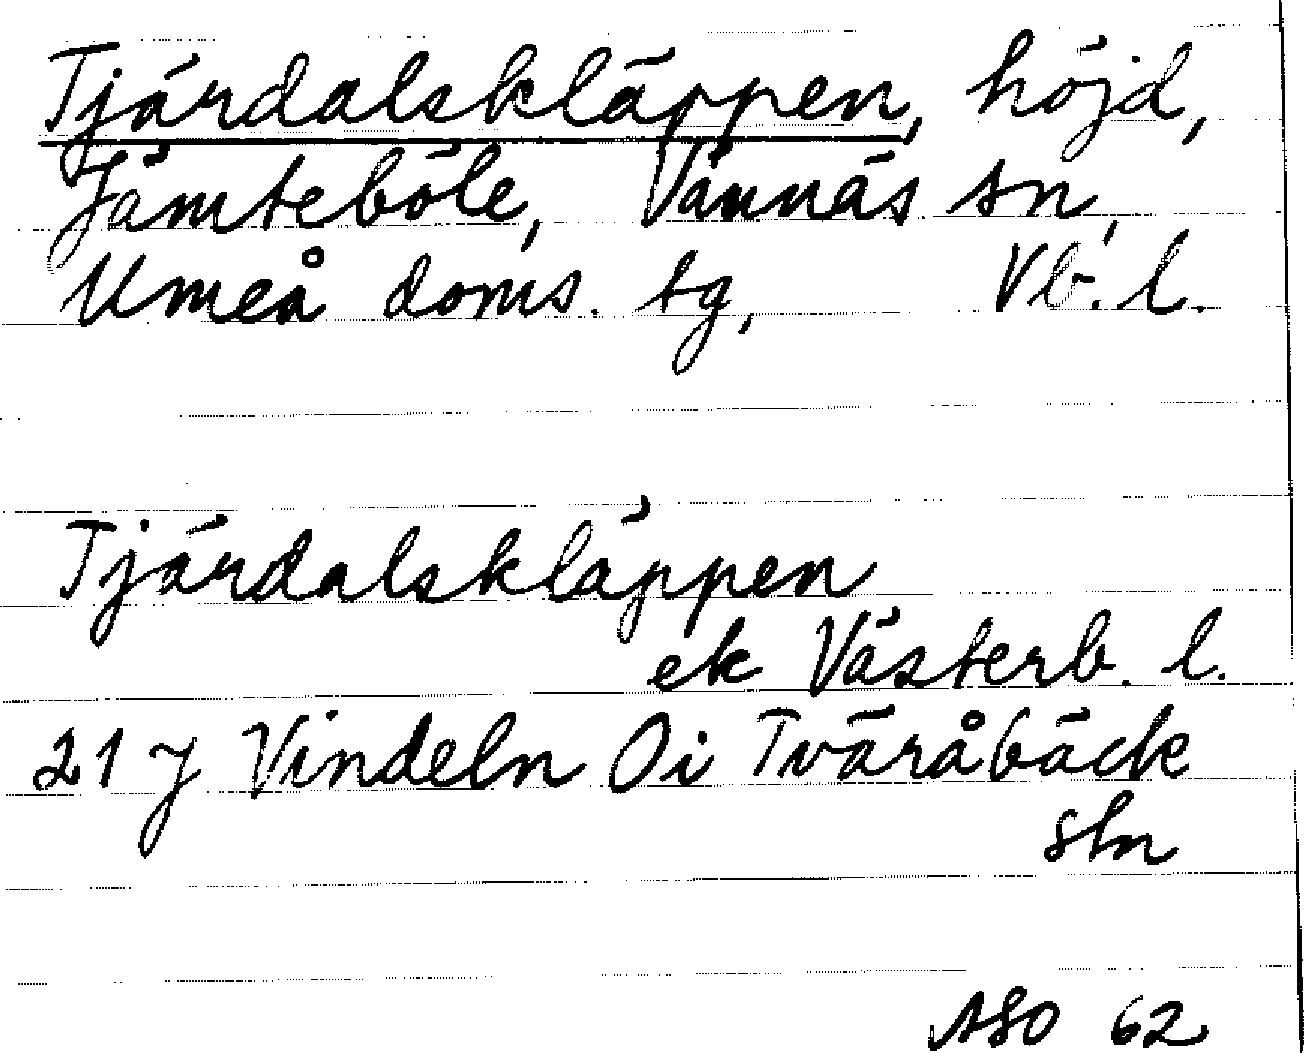 Tjärdalskläppen, höjd,
Jämteböle, Vännäs sn,
Umeå doms. tg, Vb. l.
Tjärdalskläppen
ek Västerb. l.
21 J Vindeln Öi Tväråbäck
stn
ASO 62